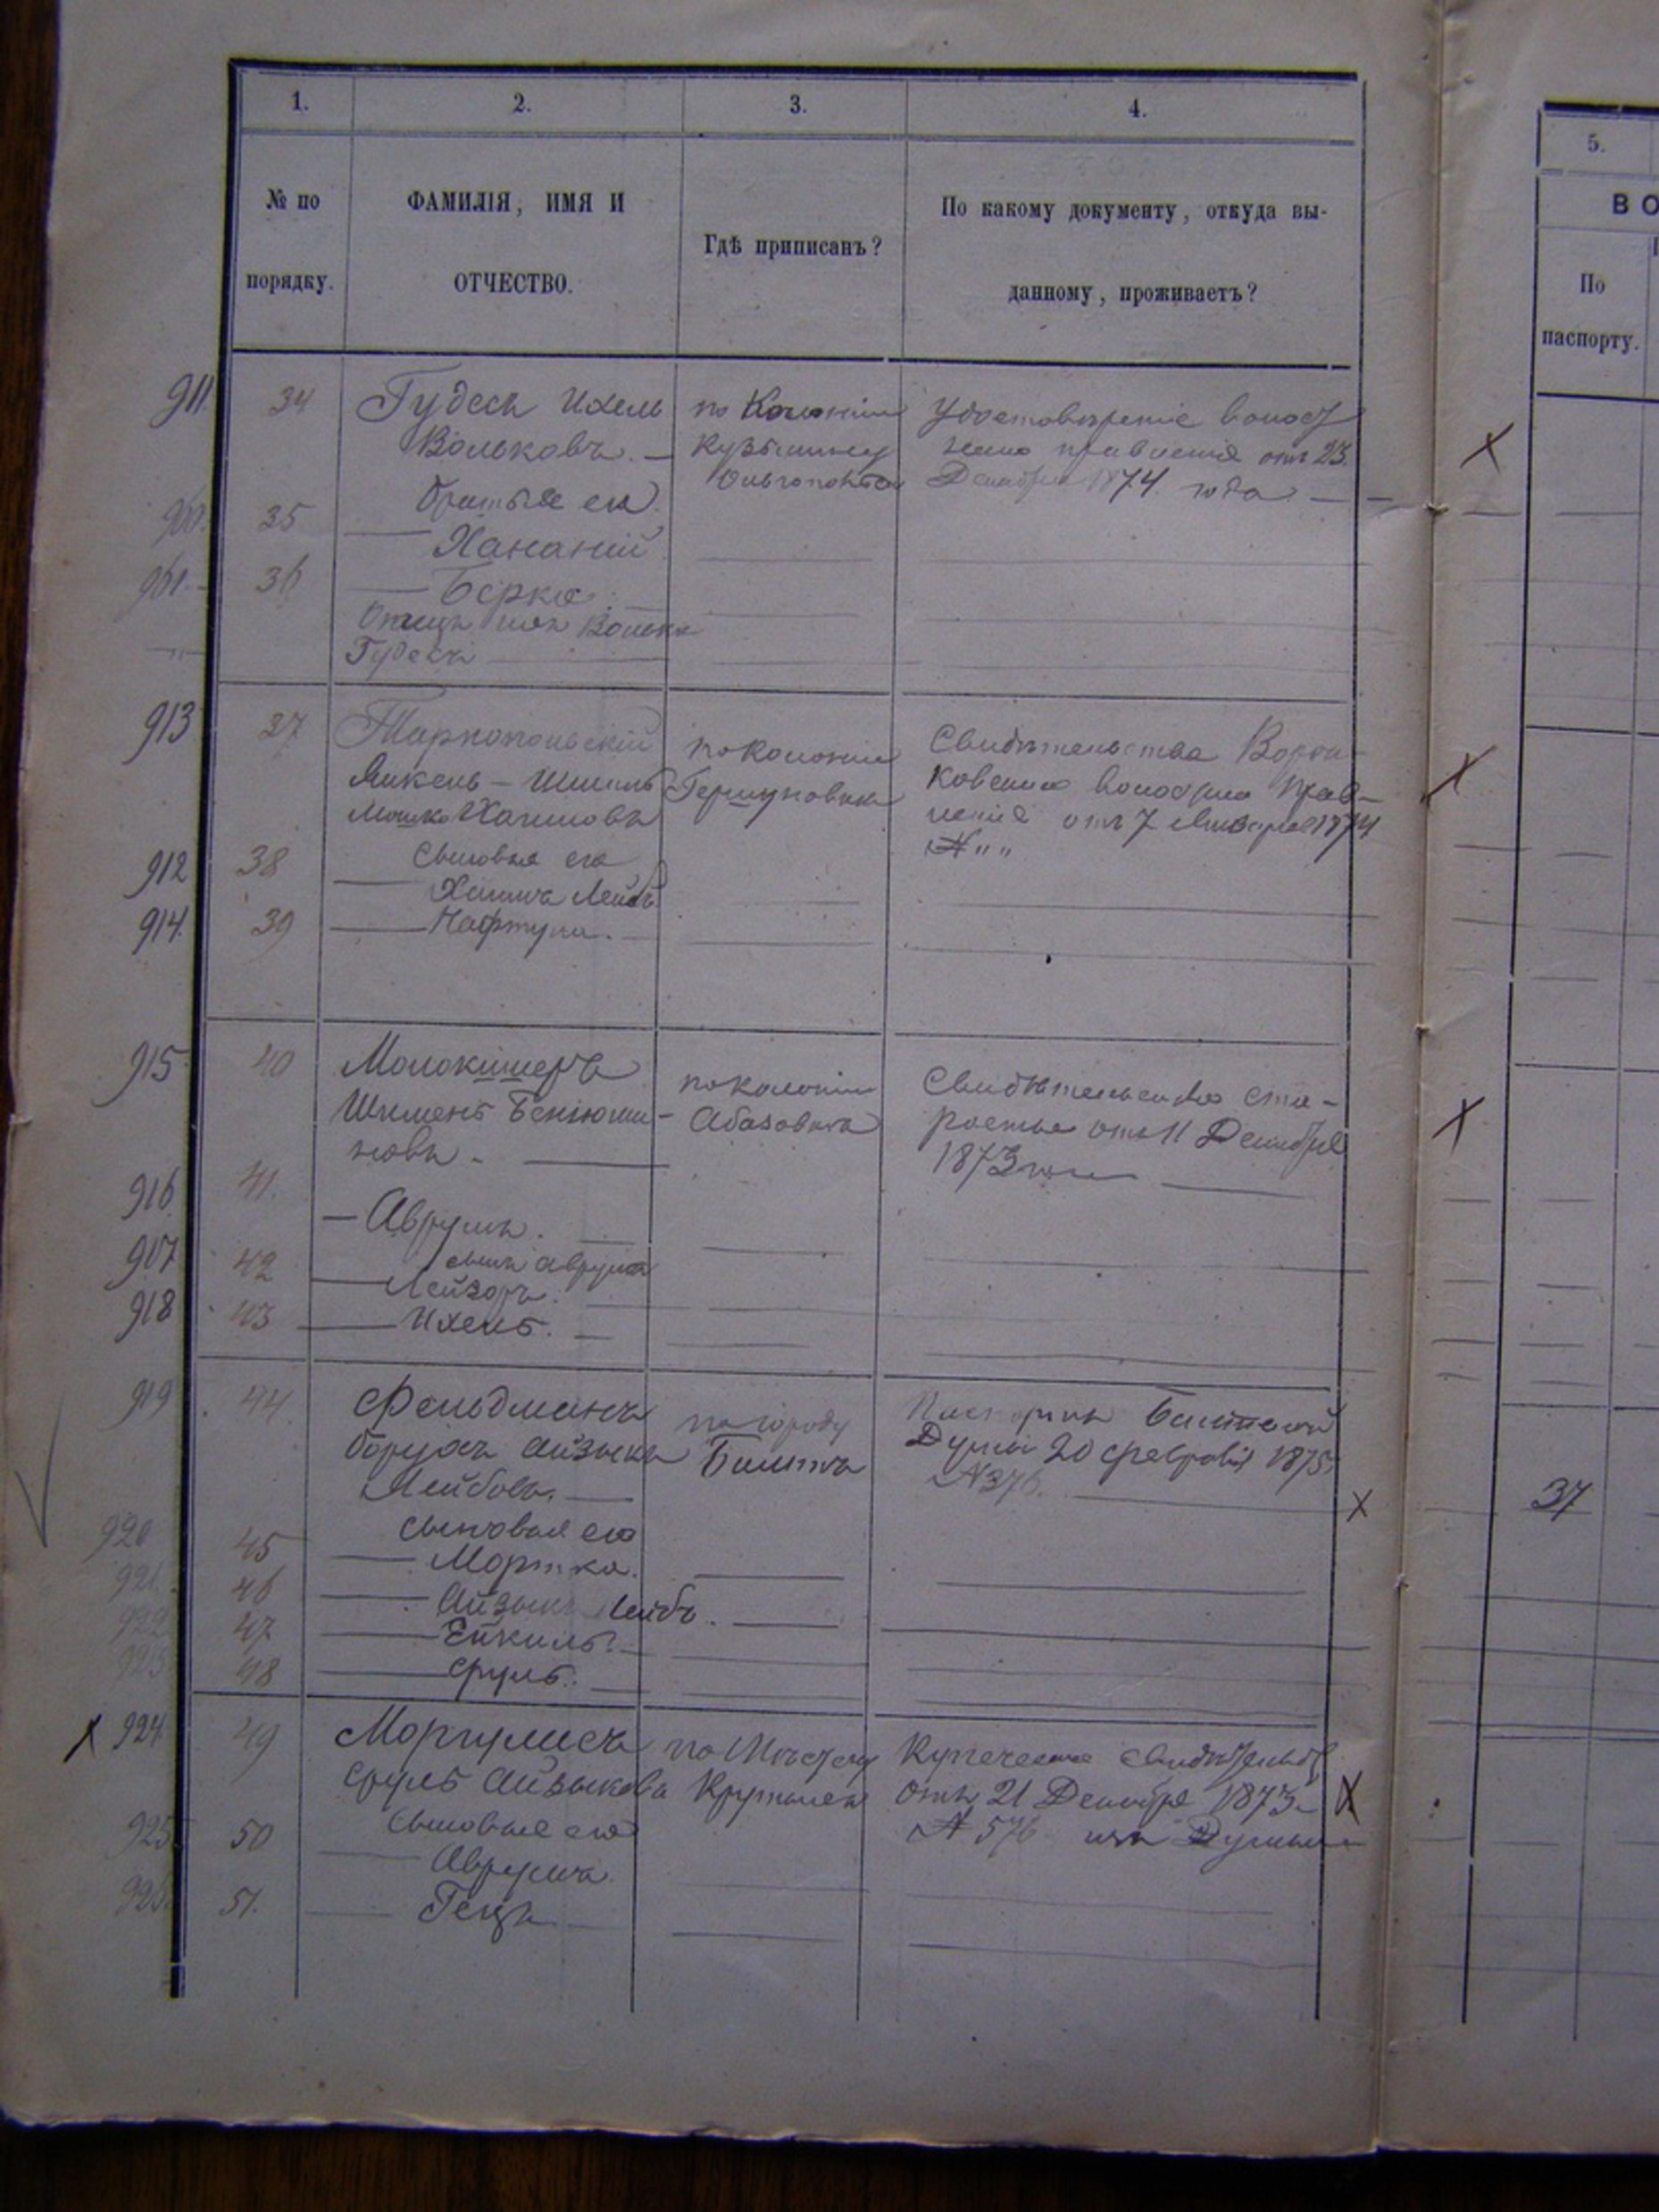 1. 2. 3. 4.
№ по порядку.
ФАМИЛІЯ, ИМЯ И
ОТЧЕСТВО.
Гдѣ приписанъ?
По какому документу, откуда вы-
данному, проживаетъ?
5.
ВО
По
паспорту.
911. 34 Гудесъ Ихель
Вольковъ.
по Колоніи
Удостовѣреніе
правленія отъ 23
Декабря 1874 года
братья его
35 Хананій
961. 36 Берко
Отецъ Волько
Гудесъ
913 37 Тарнопольскій
Янкель-Шмиль
Мошко Хаимовъ
по Колоніи
Гершуновка
Свидѣтельства
правленія отъ 7 Января 1874
№ „ „
912 38 сыновья его
Хаимъ Лейбъ
914. 39 Нафтула.
915 40 Молокишеръ
Шмепъ Беніюми-
новъ.
по колоніи
Абазовка
Свидѣтельство ста-
росты отъ 11 Декабря
1873 года
916 41. Аврумъ.
сынъ Аврума
917 42 Лейзоръ.
918 43 Ихель.
919 44 Фельдманъ
Борухъ Айзыкъ
Лейбовъ.
по городу
Балта
Паспортъ Балтской
Думы 20 февраля 1875
№ 376.
37
сыновья его
920 45 Мортко.
921. 46 Айзыкъ Лейбъ.
922 47 Енкиль.
923 48 Сруль.
924 49 Моргулисъ
Сруль Айзыковъ
по Мѣстечку
Крутымъ
Купеческое свидѣтельство
отъ 21 Декабря 1873
№ 576 изъ Думы
Сыновья его
925 50 Аврумъ
926. 51. Гецъ